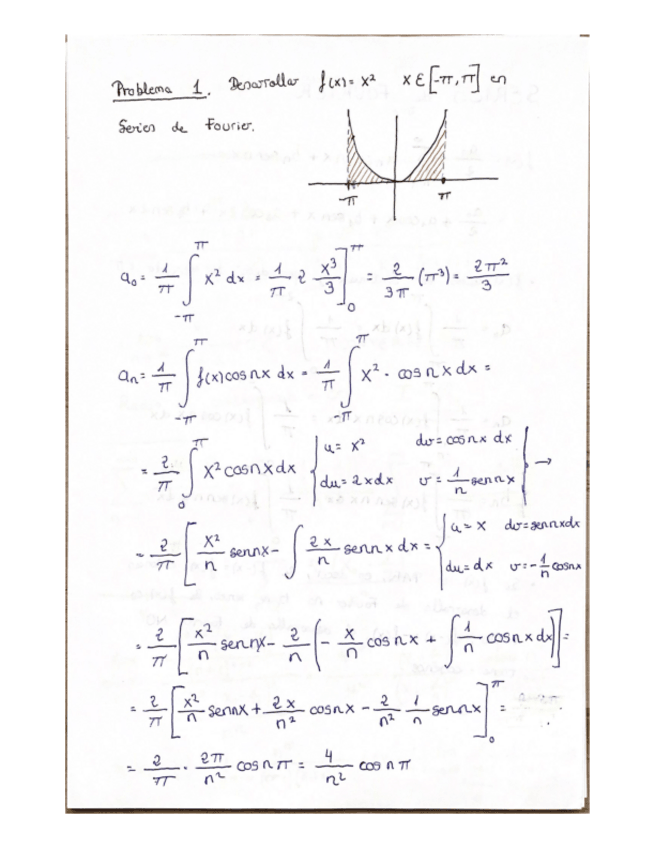 Problema 1. Desarrollar f(x) = x² x ∈ [-π, π] en
Series de Fourier.
-π π
a₀ = 1/π ∫_{-π}^{π} x² dx = 1/π 2 x³/3 ]₀^π = 2/3π (π³) = 2π²/3
aₙ = 1/π ∫_{-π}^{π} f(x) cos nx dx = 1/π ∫_{-π}^{π} x² · cos nx dx =
= 2/π ∫₀^π x² cos nx dx { u = x² dv = cos nx dx
du = 2x dx v = 1/n sen nx } →
= 2/π [ x²/n sen nx - ∫ 2x/n sen nx dx = { u = x dv = sen nx dx
du = dx v = -1/n cos nx
= 2/π [ x²/n sen nx - 2/n ( -x/n cos nx + ∫ 1/n cos nx dx ) ] =
= 2/π [ x²/n sen nx + 2x/n² cos nx - 2/n² 1/n sen nx ]₀^π =
= 2/π · 2π/n² cos nπ = 4/n² cos nπ